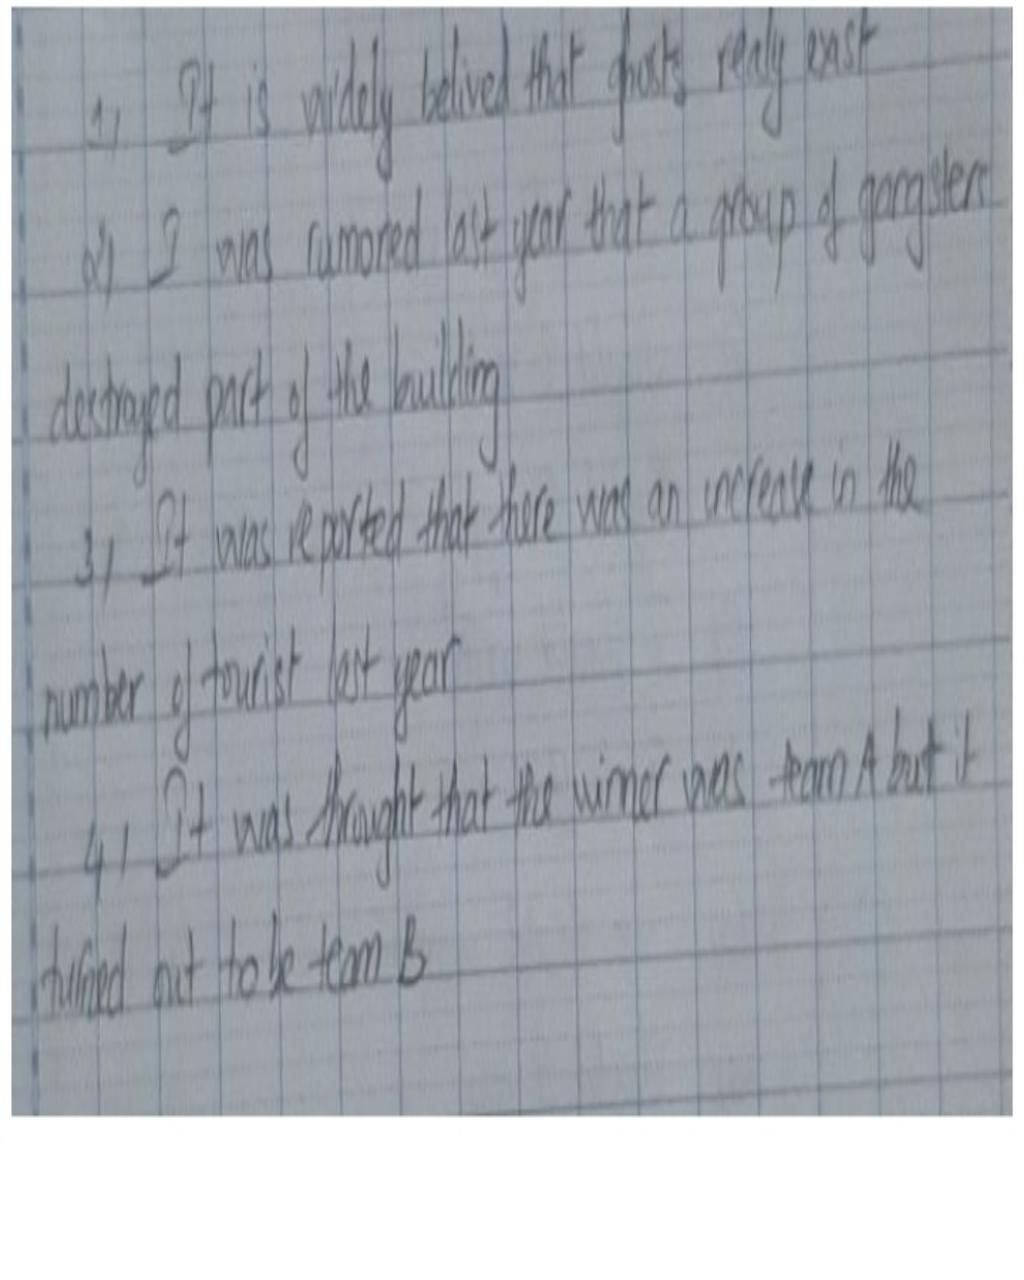 1, It is widely belived that ghosts realy exist
2, I was rumored last year that a group of gangsters
destroyed part of the building
3, It was reported that there was an increase in the
number of tourist last year
4, It was throught that the winner was team A but it
turned out to be team B